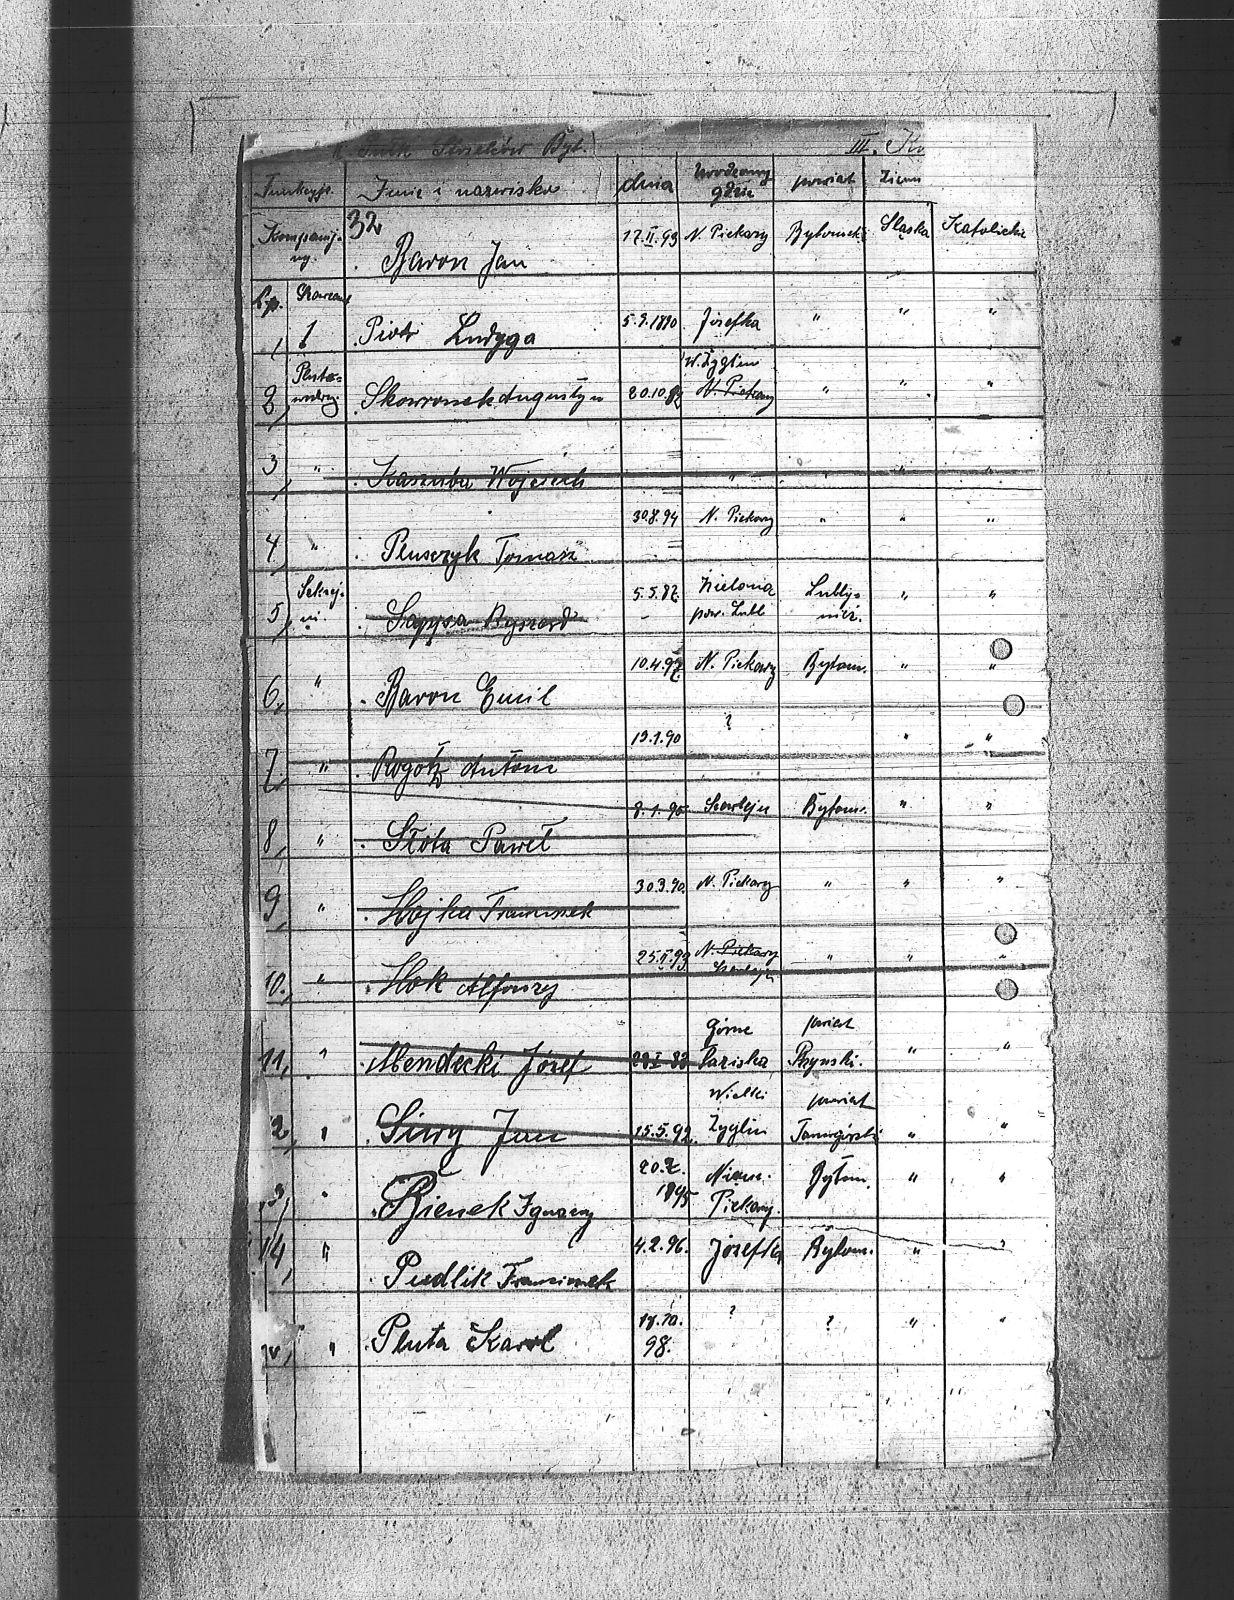 Pułk Strzelców Byt. III. Ko
Funkcyja. Imie i nazwisko dnia Urodzony gdzie powiat Ziem
32
Kompanij- ny. Baron Jan 17.II.93 N. Piekary Bytomski Śląska Katolickie
Lp.
1 Piotr Ludyga 5.9.1890 Józefka " " "
W. Żyglin
2, Pluto- nowy. Skowronek Augustyn 20.10.82 N. Piekary " " "
3, " Kaszuba Wojciech " " " "
4, " Pluszczyk Tomasz 30.8.94 N. Piekary " " "
5, Sekcyj- ni. Sapysa Ryszard 5.5.82. Zielona pow. Lubl Lubly- niec. " "
6, " Baron Emil 10.4.97. N. Piekary Bytom. " "
7, " Rogotz Antoni 13.1.90 ? " "
8, " Słota Paweł 8.1.95 Szarleju Bytom. " "
9, " Hojka Franciszek 30.3.90. N. Piekary " " "
10. " Hok Alfonzy 25.II.93 N. Piekary " " "
11, " Mendecki Józef Górne Łaziska powiat Pszynski. " "
2, " Siwy Jan 15.5.92. Wielki Żyglin powiat Tarnogórski " "
3, " Bienek Ignacy 20.7. 1895 Niem. Piekary. Bytom. " "
14, " Pudlik Franciszek 4.2.96. Józefka Bytom. " "
" Pluta Karol 18.10. 98. ? ? " "